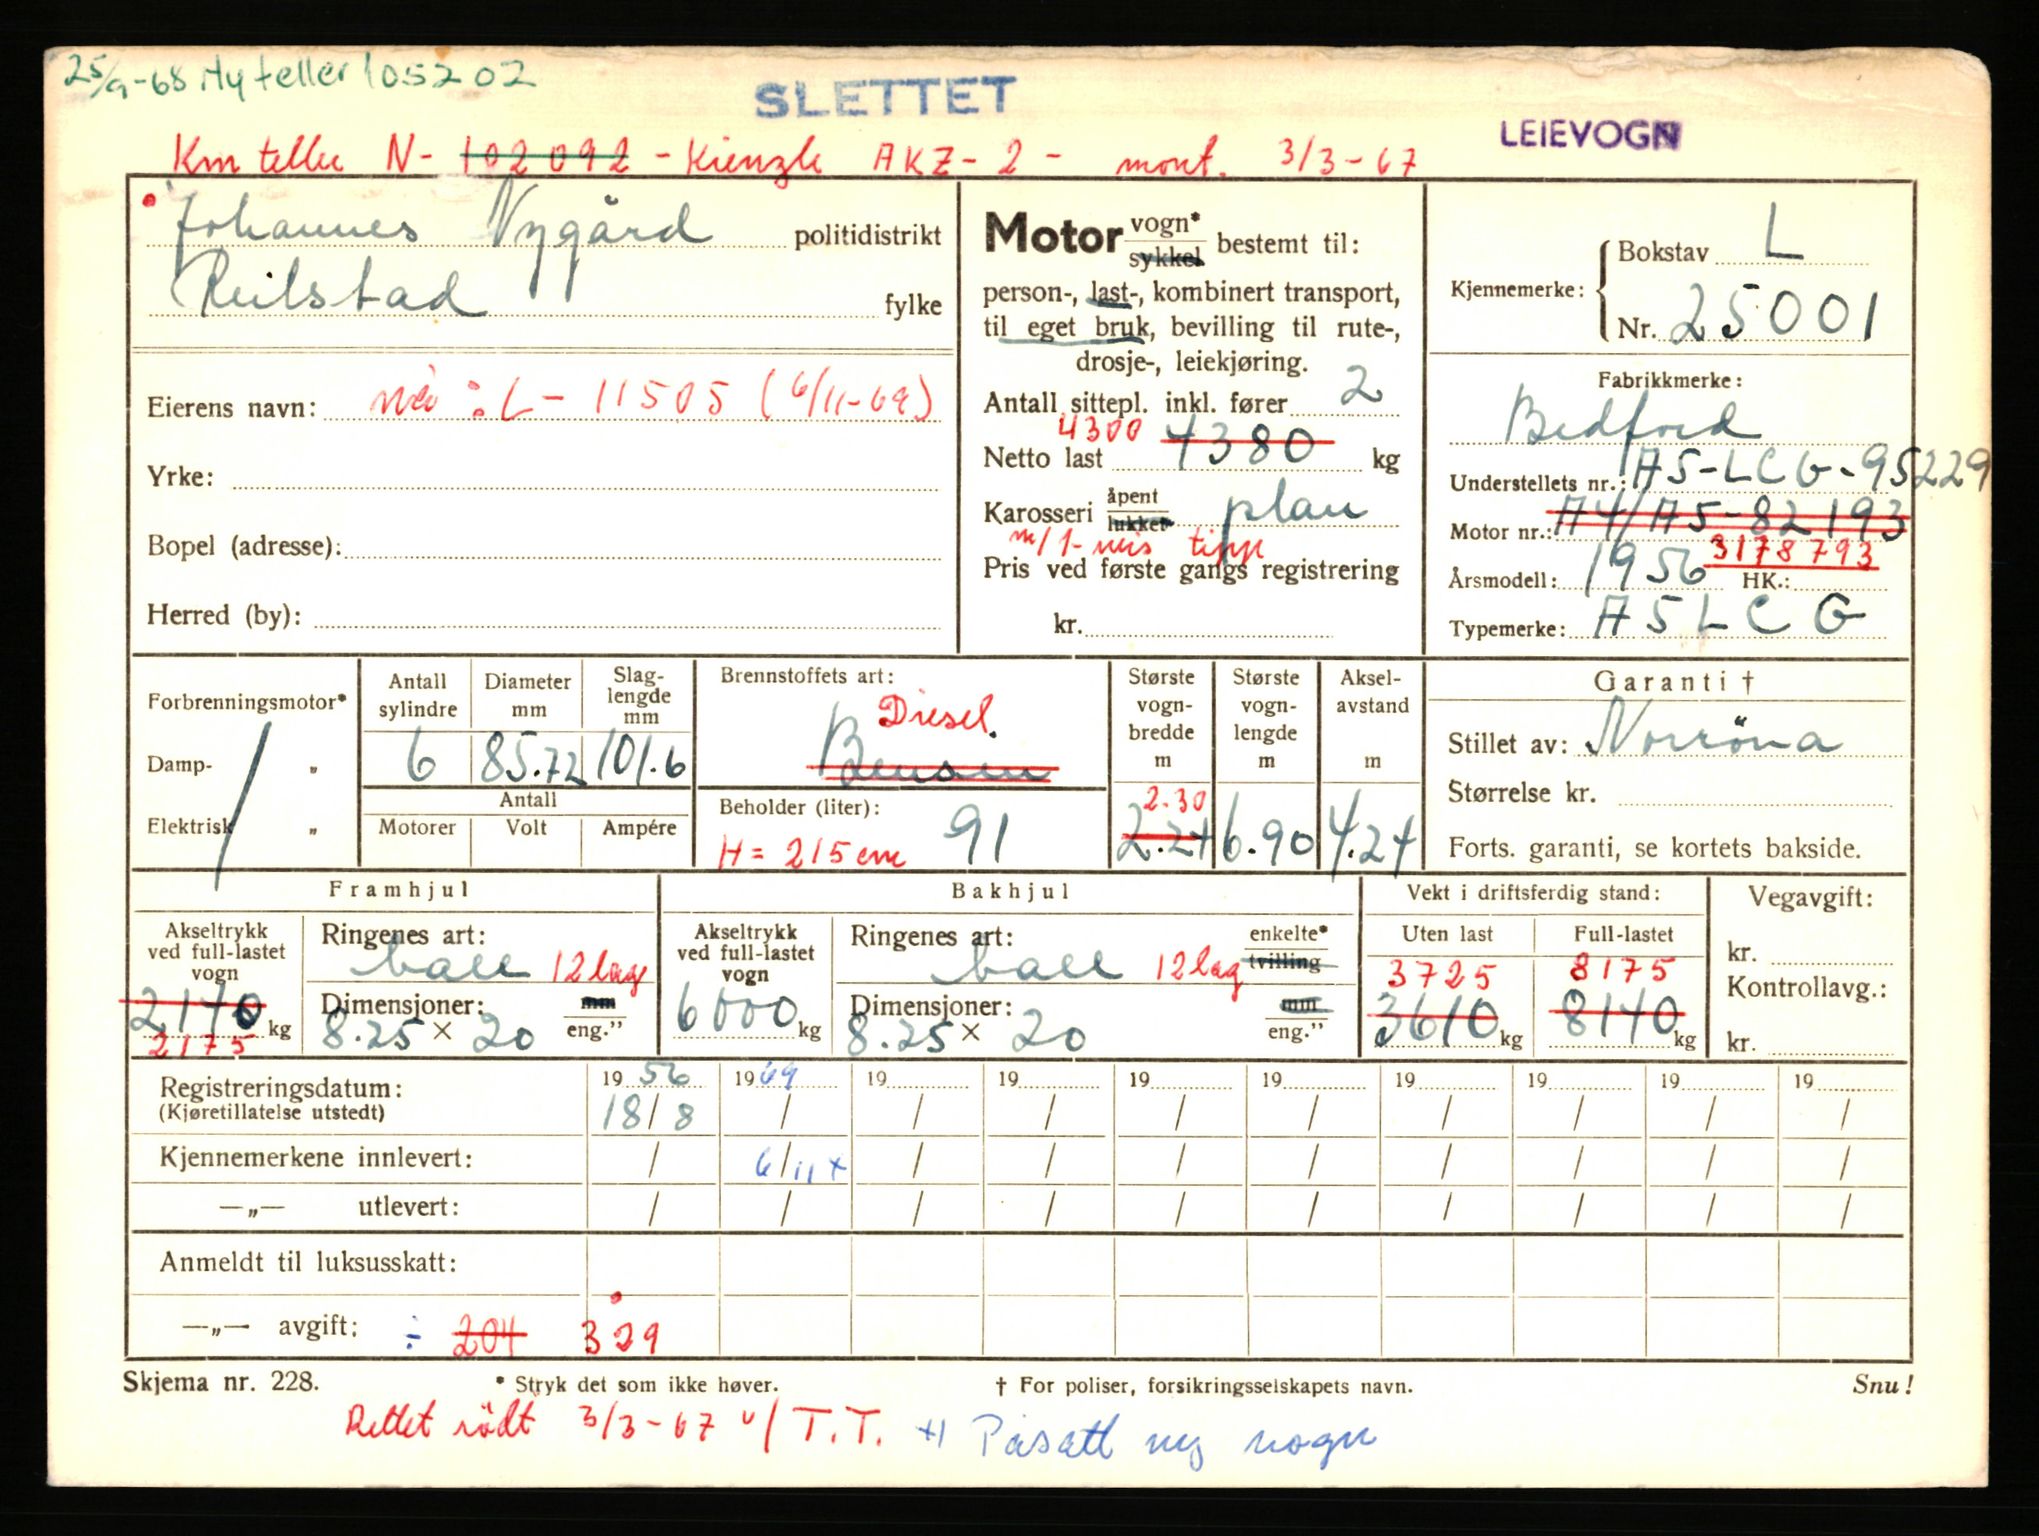 25/9-68 Ny teller 105202
SLETTET
LEIEVOGN
Km teller N- 102092 - Kienzle AKZ-2 - mont. 3/3-67
Johannes Nygård politidistrikt
Reilstad fylke
Eierens navn: nå: L-11505 (6/11-69)
Yrke:
Bopel (adresse):
Herred (by):
Motor vogn* sykkel bestemt til:
person-, last-, kombinert transport,
til eget bruk, bevilling til rute-,
drosje-, leiekjøring.
Antall sittepl. inkl. fører 2
4300
Netto last 4380 kg
Karosseri åpent lukket plan
m/1-veis tipp
Pris ved første gangs registrering
kr.
Kjennemerke: Bokstav L
Nr. 25001
Fabrikkmerke:
Bedford
Understellets nr.: A5-LCG-95229
Motor nr.: A4/A5-82193
3178793
Årsmodell: 1956 HK.:
Typemerke: A5LCG
Forbrenningsmotor*
Damp- „
Elektrisk „
Antall sylindre 6
Diameter mm 85.72
Slag-lengde mm 101.6
Antall
Motorer Volt Ampére
Brennstoffets art:
Diesel.
Bensin
Beholder (liter): 91
H = 215 cm
Største vogn-bredde m 2.30 2.24
Største vogn-lengde m 6.90
Aksel-avstand m 4.24
Garanti †
Stillet av: Norröna
Størrelse kr.
Forts. garanti, se kortets bakside.
Framhjul
Akseltrykk ved full-lastet vogn 2170 kg
2175
Ringenes art: ball 12 lag
Dimensjoner: mm
8.25 × 20 eng.”
Bakhjul
Akseltrykk ved full-lastet vogn 6000 kg
Ringenes art: ball 12 lag enkelte* tvilling
Dimensjoner: mm
8.25 × 20 eng.”
Vekt i driftsferdig stand:
Uten last Full-lastet
3725 8175
3610 kg 8140 kg
Vegavgift:
kr.
Kontrollavg.:
kr.
Registreringsdatum: 19 56 19 69 19 19 19 19 19 19 19 19
(Kjøretillatelse utstedt) 18/8 / / / / / / / / /
Kjennemerkene innlevert: / 6/11 x / / / / / / / /
—„— utlevert: / / / / / / / / / /
Anmeldt til luksusskatt:
—„— avgift: ÷ 204 329
Skjema nr. 228. * Stryk det som ikke høver. † For poliser, forsikringsselskapets navn. Snu!
Rettet rödt 3/3-67 v/ T.T. x) Påsatt ny vogn